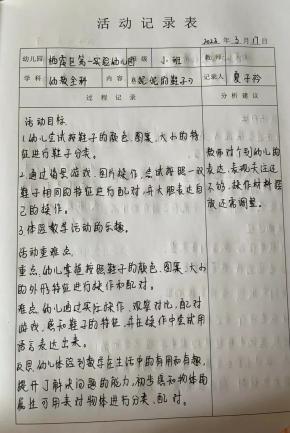 活动记录表
2023年3月17日
幼儿园 栖霞区第一实验幼儿园 班级 小班 教师
学科 幼教全科 内容 《蛇蛇的鞋子》 记录人 夏子衿
过程记录 分析建议
活动目标:
1.幼儿尝试按鞋子的颜色、图案、大小的特
征进行鞋子分类。
2.通过情景游戏、图片操作,尝试按照一双
鞋子相同的特征进行配对,并大胆表达自
己的操作。
3.体验数学活动的乐趣。
活动重难点:
重点:幼儿掌握按照鞋子的颜色、图案、大小
的外形特征进行操作和配对。
难点:幼儿通过实际操作、观察对比、配对
游戏,感知鞋子的特征,并在操作中尝试用
语言表达出来。
反思:幼儿体验到数学在生活中的有用和有趣,
提升了解决问题的能力,初步感知物体的
属性可用来对物体进行分类、配对。
教师对个别幼儿的
表达、表现关注还
不够,操作材料摆
放还需调整。